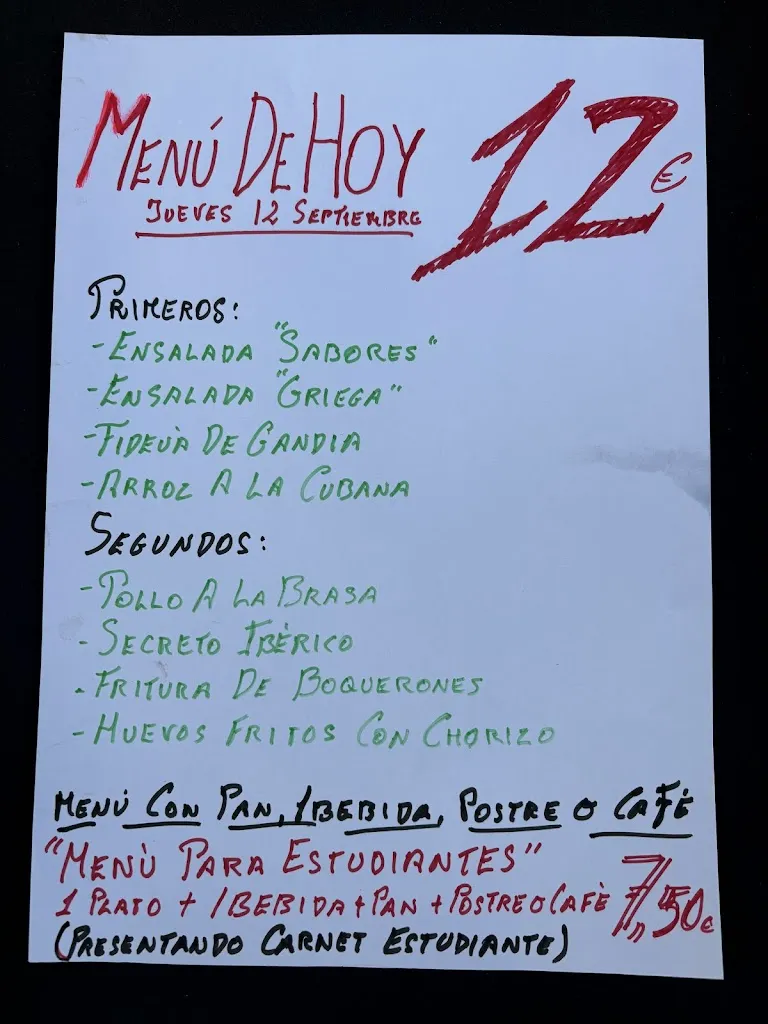 MENÚ DE HOY 12€
JUEVES 12 SEPTIEMBRE
PRIMEROS:
-ENSALADA "SABORES"
-ENSALADA "GRIEGA"
-FIDEUÀ DE GANDIA
-ARROZ A LA CUBANA
SEGUNDOS:
-POLLO A LA BRASA
-SECRETO IBÉRICO
-FRITURA DE BOQUERONES
-HUEVOS FRITOS CON CHORIZO
MENÚ CON PAN, 1 BEBIDA, POSTRE O CAFÉ
"MENÙ PARA ESTUDIANTES"
1 PLATO + 1 BEBIDA + PAN + POSTRE O CAFÈ 7,50€
(PRESENTANDO CARNET ESTUDIANTE)